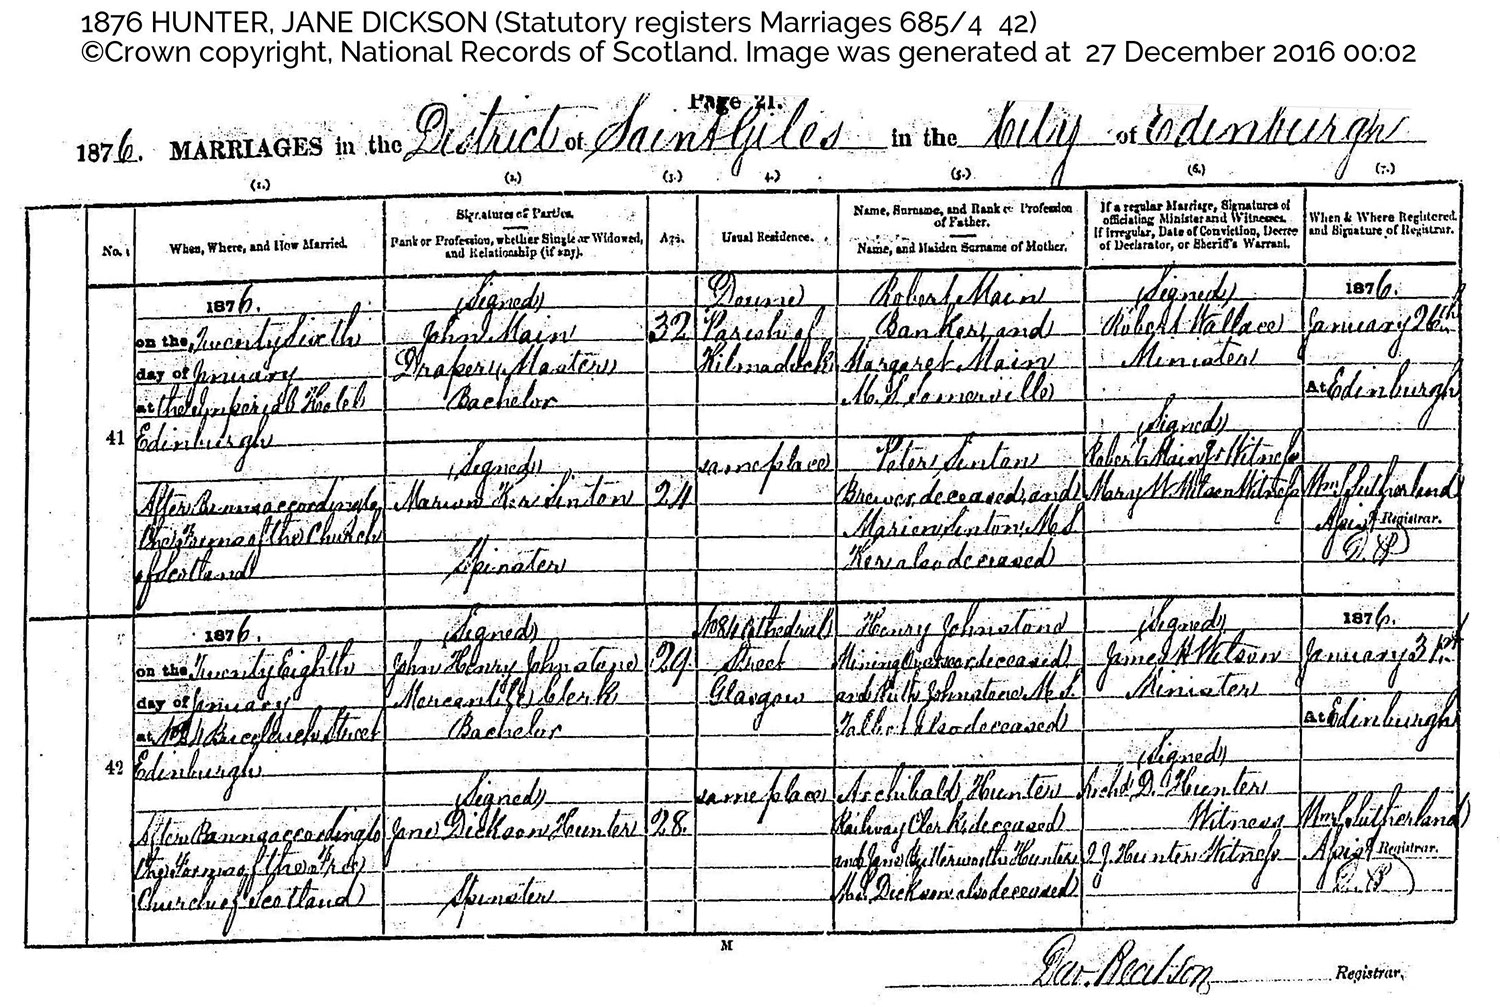 1876 HUNTER, JANE DICKSON (Statutory registers Marriages 685/4 42)
©Crown copyright, National Records of Scotland. Image was generated at 27 December 2016 00:02
Page 21.
1876. MARRIAGES in the District of Saint Giles in the City of Edinburgh
(1.) (2.) (3.) 4.) (5.) (6.) (7.)
No.
When, Where, and How Married.
Signatures of Parties.
Rank or Profession, whether Single or Widowed, and Relationship (if any).
Age.
Usual Residence.
Name, Surname, and Rank or Profession of Father.
Name, and Maiden Surname of Mother.
If a regular Marriage, Signatures of officiating Minister and Witnesses.
If Irregular, Date of Conviction, Decree of Declarator, or Sheriff's Warrant.
When & Where Registered, and Signature of Registrar.
41
1876.
on the Twenty Sixth
day of January
at the Imperial Hotel
Edinburgh
After Banns according to
the Forms of the Church
of Scotland
(Signed)
John Main
Draper, Master
Bachelor
(Signed)
Marion Ker Sinton
Spinster
32
24
Doune
Parish of
Kilmadock
same place
Robert Main
Banker, and
Margaret Main
M.S. Somerville
Peter Sinton
Brewer, deceased, and
Marion Sinton, M.S.
Ker also deceased
(Signed)
Robert Wallace
Minister
(Signed)
Robert Main Jr Witness
Mary W. Wilson Witness
1876.
January 26th
At Edinburgh
Wm Sutherland
Assist Registrar.
D. B.
42
1876.
on the Twenty Eighth
day of January
at No 4 Buccleuch Street
Edinburgh
After Banns according to
the Forms of the Free
Church of Scotland
(Signed)
John Henry Johnstone
Mercantile Clerk
Bachelor
(Signed)
Jane Dickson Hunter
Spinster
29
28.
No 84 Cathedral
Street
Glasgow
same place
Henry Johnstone
Mining Overseer, deceased
and Ruth Johnstone M.S.
also deceased
Archibald Hunter
Railway Clerk, deceased
and Jane Butterworth Hunter
M.S. Dickson also deceased
(Signed)
James H Wilson
Minister
(Signed)
Archd D. Hunter
Witness
J. Hunter Witness
1876.
January 31st
At Edinburgh
Wm Sutherland
Assist Registrar.
D. B.
M
Registrar.